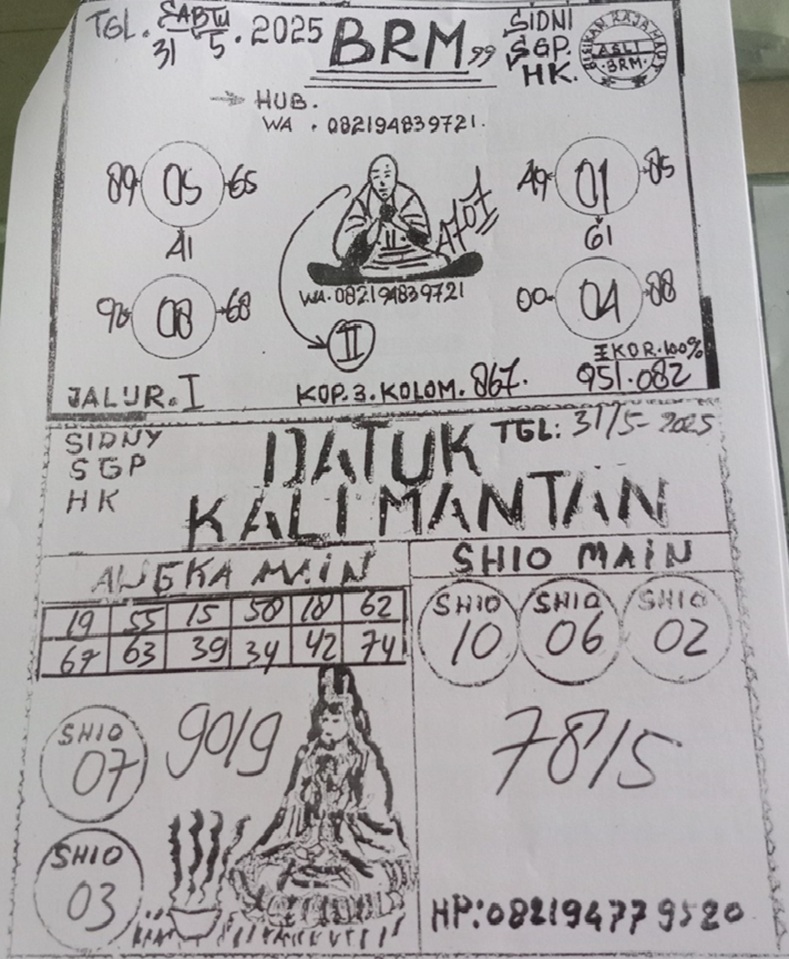 TGL. SABTU 31 5. 2025
BRM 99
SIDNI
SGP.
HK.
ASLI
BRM
HUB.
WA . 082194839721.
89 05 65
41
49 01 85
61
4701
98 08 68
WA. 082194839721
II
00 04 88
EKOR.100%
951.082
JALUR. I
KOP.3.KOLOM. 867.
SIDNY
SGP
HK
DATUK
KALIMANTAN
TGL: 31/5- 2025
ANGKA MAIN
SHIO MAIN
19 55 15 58 18 62
67 63 39 34 42 74
SHIO 10
SHIO 06
SHIO 02
SHIO 07
90/9
78/5
SHIO 03
HP:082194779520